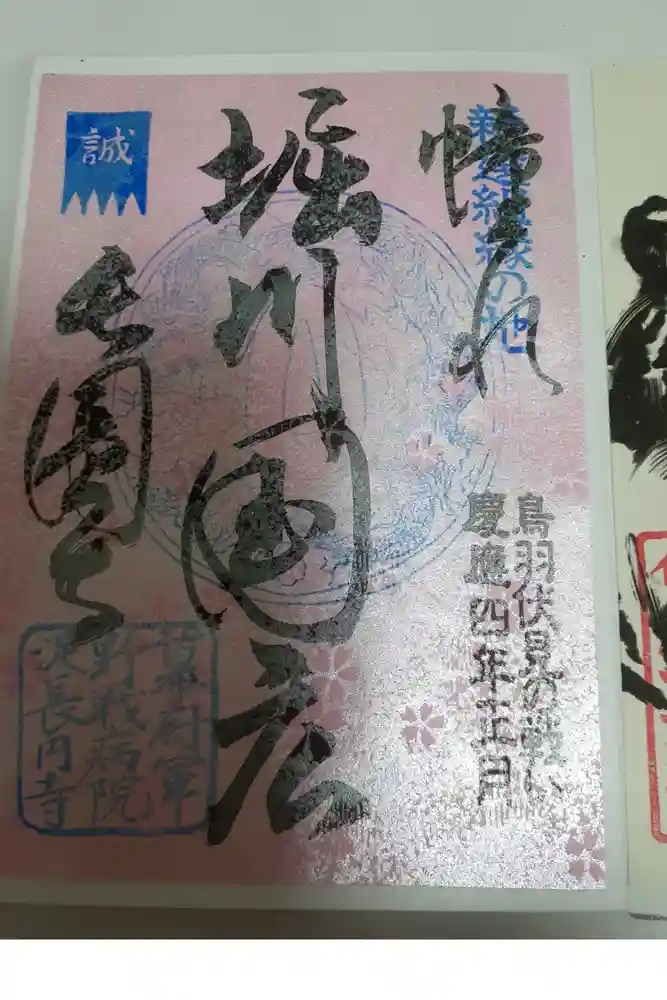 新選組縁の地
帰れ
鳥羽伏見の戦い
慶應四年正月
堀川国広
誠
長圓寺
幕府軍
野戦病院
淀長円寺